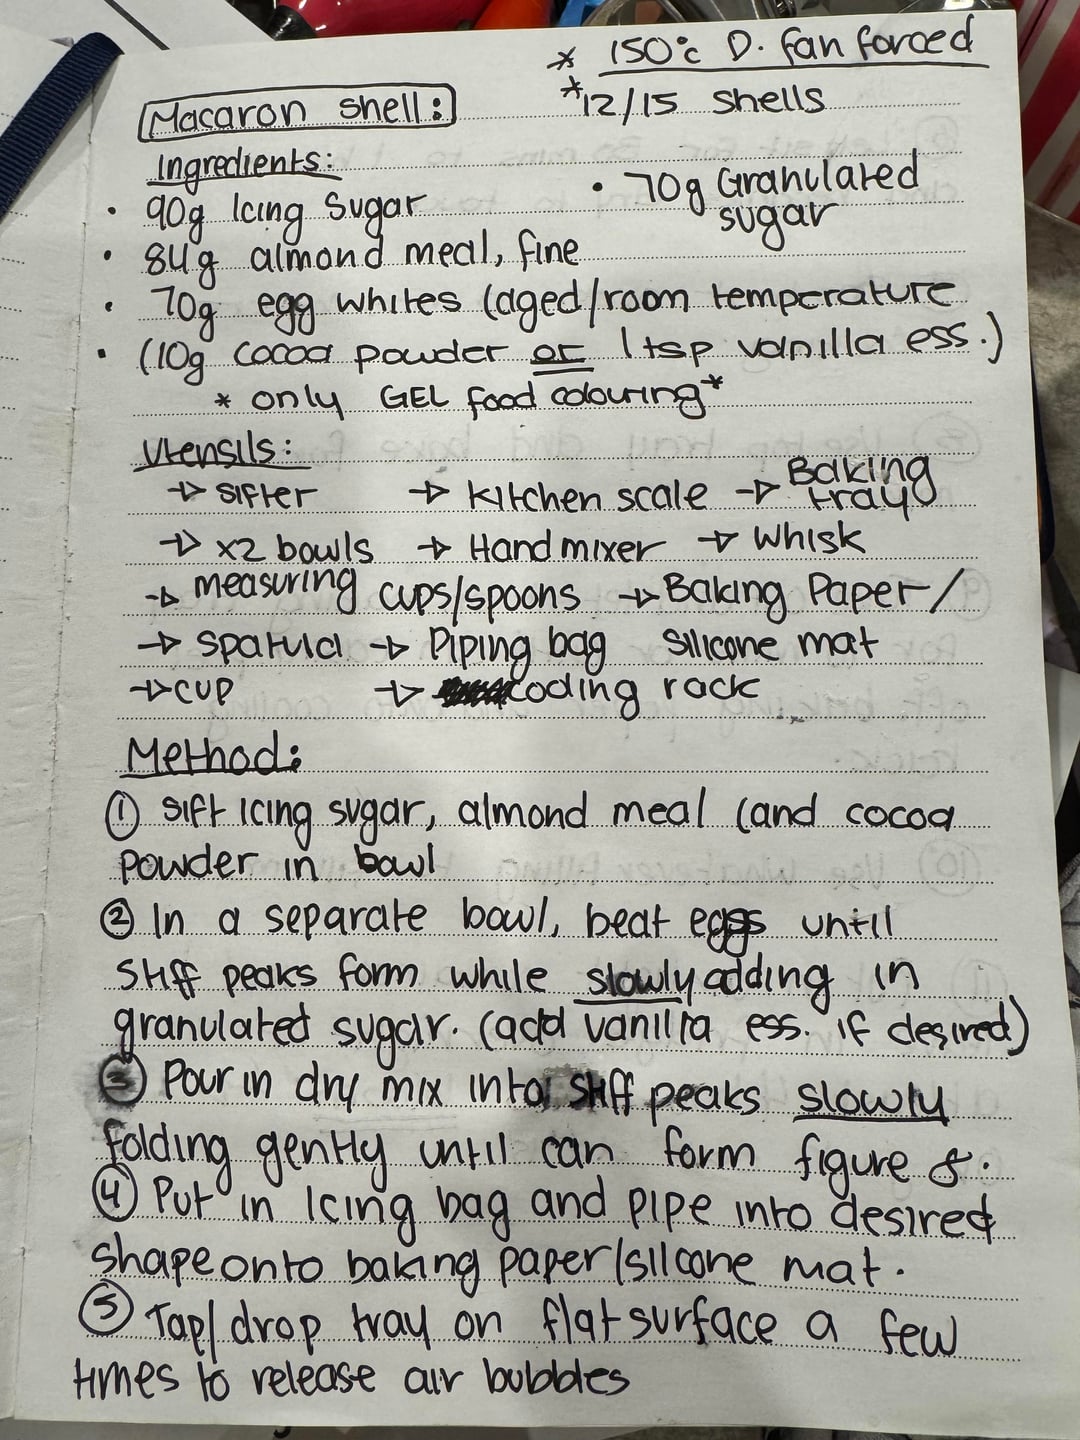 * 150°c D. fan forced
* 12/15 shells
Macaron shell:
Ingredients:
• 90g Icing Sugar
• 70g Granulated
sugar
• 84g almond meal, fine
• 70g egg whites (aged/room temperature
• (10g cocoa powder or 1 tsp vanilla ess.)
* only GEL food colouring*
Utensils:
→ sifter → kitchen scale → Baking
tray
→ x2 bowls → Hand mixer → Whisk
→ measuring cups/spoons → Baking Paper/
→ spatula → Piping bag silicone mat
→ cup → cooling rack
Method:
① sift icing sugar, almond meal (and cocoa
powder in bowl
② In a separate bowl, beat eggs until
stiff peaks form while slowly adding in
granulated sugar. (add vanilla ess. if desired)
③ Pour in dry mix into stiff peaks slowly
folding gently until can form figure 8.
④ Put in Icing bag and pipe into desired
shape onto baking paper/silcone mat.
⑤ Tap/drop tray on flat surface a few
times to release air bubbles